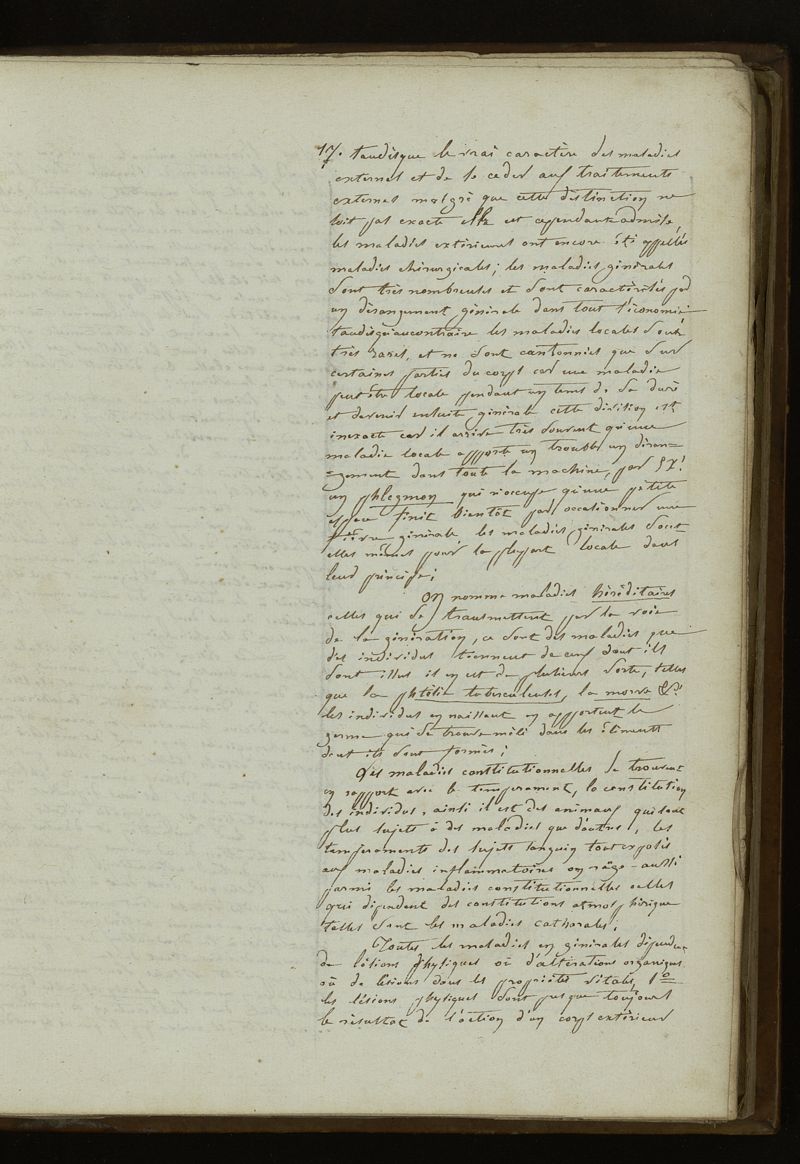 17. tandisque le vrai caractère des maladies
externes et de se ceder aux traitements
externes malgré que cette distinction ne
soit pas exacte elle est cependant admise,
les maladies extérieures ont encore été appellés
maladies chirurgicales; les maladies générales
sont très nombreuses et sont caractérisés par
un dérangement générale dans tout l'économie
tandisqu'aucontraire les maladies locales sont
très rares, et ne sont cantonnées que sur
certaines parties du corps car une maladie
peut être locale pendant un tems de sa duré
et devenir ensuite générale cette division est
inexacte car il arrive très souvent qu'une
maladie locale apporte un trouble un déran=
=gement dans toute la machine, par
un phlegmon qui n'occupe qu'une petite
espace finit bientôt par occasionner une
fièvre générale, les maladies générales sont
elles mêmes pour la plupart locale dans
leur principe;
On nomme maladies héréditaires
celles qui se transmettent par la voie
de la génération, ce sont des maladies que
des individus tiennent de ceux dont ils
sont issus il en est de plusieurs sorte, telles
que la phtisie tuberculeuse, la morve &.a
les individus en naissant en apportent le
germe qui se trouve mêlé dans les éléments
dont ils sont formés;
Des maladies constitutionnelles se trouvent
en rapport avec le temperament, la constitution
des individus, ainsi il est des animaux qui sont
plus sujets à des maladies que d'autres, les
temperaments des sujets sanguin sont exposés
aux maladies inflammatoires on range aussi
parmi les maladies constitutionnelles celles
qui dépendent des constitutions atmosphérique
telles sont les maladies catharales;
Toutes les maladies en générales dépendent
de lésions physiques où d'altérations organiques
où de lésions dans les propriétés vitales, 1o
les lésions physiques sont presque toujours
le résultat de l'action d'un corps extérieur